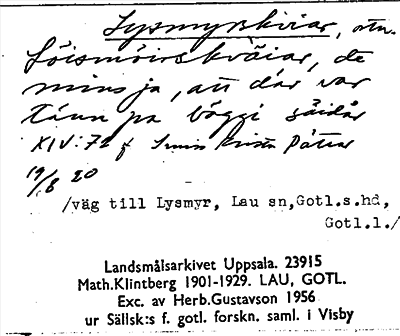 Lysmyrskviar, ortn.
Löismöirskväiar, de
mins ja, att där var
täun pa bäggi säidår
XIV:72 f
19/8 20
/väg till Lysmyr, Lau sn,Gotl.s.hd,
Gotl.l./
Landsmålsarkivet Uppsala. 23915
Math.Klintberg 1901-1929. LAU, GOTL.
Exc. av Herb.Gustavson 1956
ur Sällsk:s f. gotl. forskn. saml. i Visby